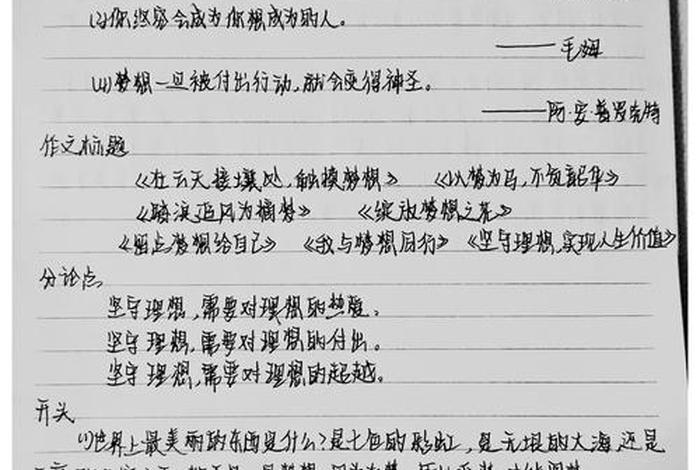 (3)你终究会成为你想成为的人。
——毛姆
(4)梦想一旦被付出行动,就会变得神圣。
——阿·安·普罗克特
作文标题
《在云天接壤处,触摸梦想》 《以梦为马,不负韶华》
《踏浪追风为摘梦》 《绽放梦想之花》
《留点梦想给自己》 《我与梦想同行》 《坚守理想,实现人生价值》
分论点
坚守理想,需要对理想的热爱。
坚守理想,需要对理想的付出。
坚守理想,需要对理想的超越。
开头
(1)世界上最美丽的东西是什么?是七色的彩虹,是无垠的大海,还是